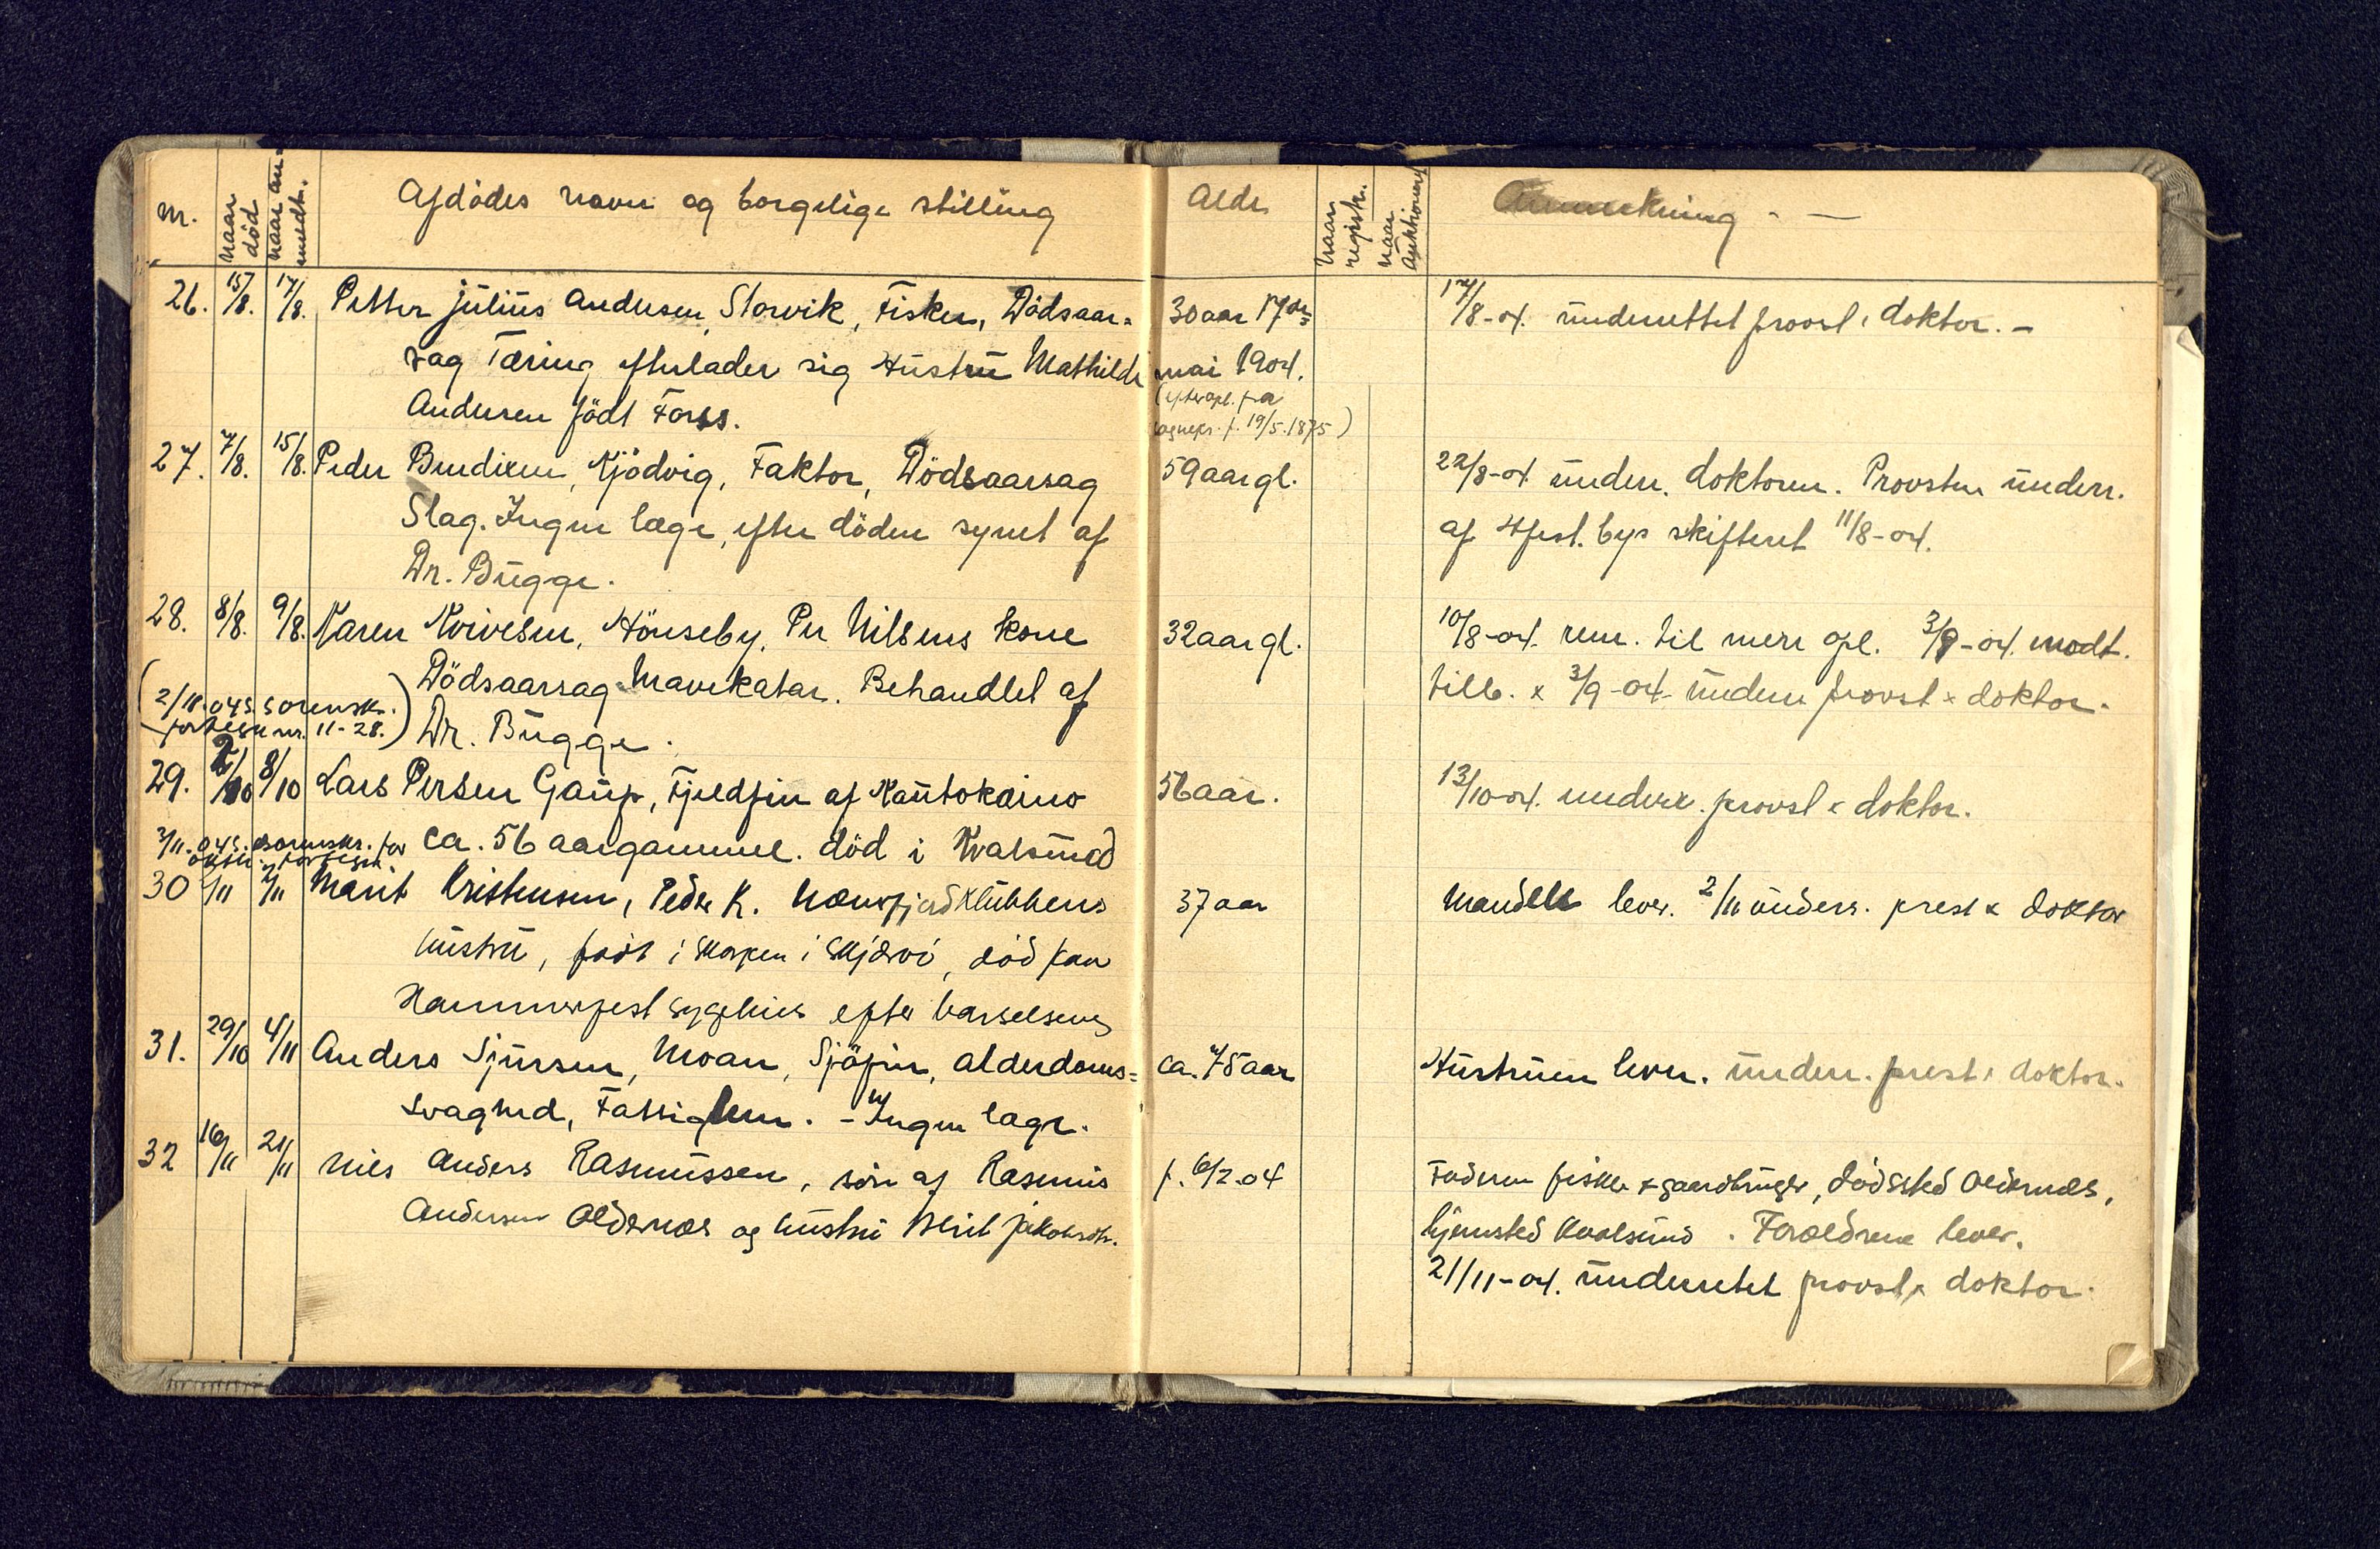 nr.
Naar död
Naar an-meldt.
Afdödes navn og borgelige stilling
Alder
Naar registr.
Naar Auktioneret
Anmerkning - —
26. 15/8. 17/8. Petter Julius Andersen, Storvik, Fisker, Dödsaar= 30 aar 17de 17/8-04. underrettet provst & doktor. -
sag Tæring efterlader sig Hustru Mathilde mai 1904.
Andersen födt Forss. (efter opl. fra
f. 19/5.1875)
27. 7/8. 15/8. Peder Bendixen, Kjödvig, Faktor, Dödsaarsag 59 aar gl. 22/8-04 underr. doktoren. Provsten underr.
Slag. Ingen læge, efter döden synet af af Hfest. bys skifteret 11/8-04.
Dr. Bugge.
28. 8/8. 9/8. Karen Kvivesen, Hönseby, Per Nilsens kone 32 aar gl. 10/8-04. rem. til mere opl. 3/9-04. modt.
Dödsaarsag Mavekatar. Behandlet af tilb. & 3/9-04 underr. provst & doktor.
(2/11.04 s. sorensk.
fortegn nr. 11-28.) Dr. Bugge.
29. 2/10 8/10 Lars Persen Gaup, Fjeldfin af Kautokaino 56 aar. 13/10-04. underr. provst & doktor.
2/11.04 s. sorenskr. for ca. 56 aar gammel. död i Kvalsund
oktbr. fortegn
30 1/11 2/11 Marit Kristensen, Peder K. Næverfjord Klubbens 37 aar Manden lever. 2/11 underr. prest & doktor
hustru, födt i Skorpen i Skjærvö, död paa
Hammerfest sygehus efter barselseng
31. 29/10 4/11 Anders Sjursen, Moan, Sjöfin, alderdoms= ca. 75 aar Hustruen lever. underr. prest & doktor.
svaghed, Fattiglem. - Ingen læge.
32 16/11 21/11 Nils Anders Rasmussen, sön af Rasmus f. 6/2.04 Faderen fisker & gaardbruger, dödssted Oldernes,
Andersen Oldernæs og hustru Berit Jakobsdtr. hjemsted Kvalsund. Forældrene lever.
21/11-04. underrettet provst & doktor.